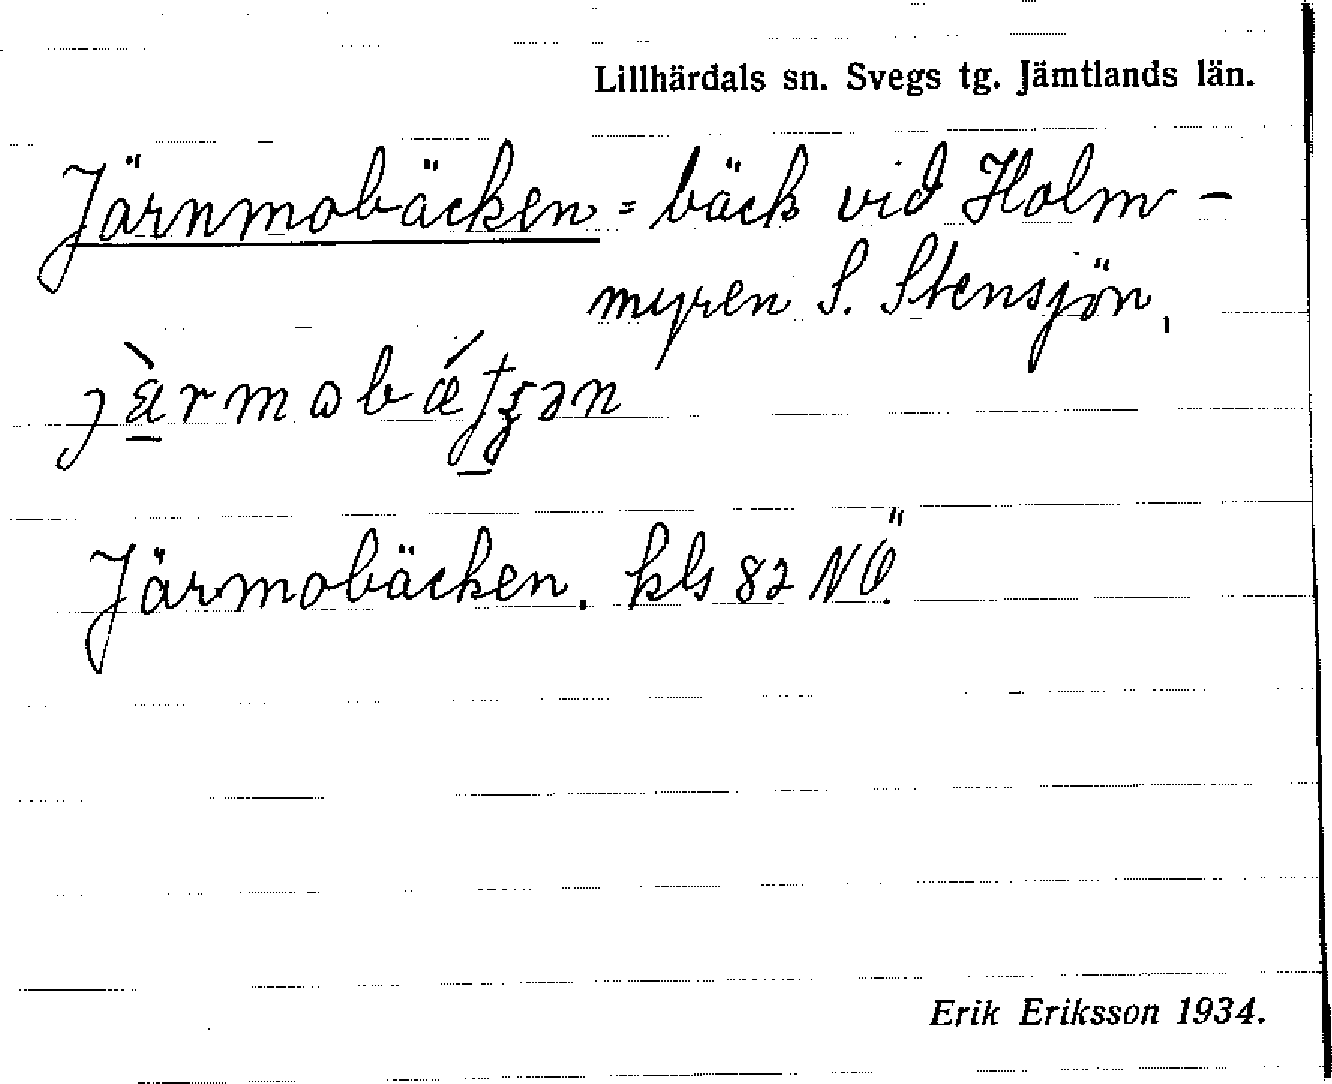 Lillhärdals sn. Svegs tg. Jämtlands län.
Järnmobäcken = bäck vid Holm-
myren S. Stensjön,
Järmobäcken. kbl 82 NÖ.
Erik Eriksson 1934.